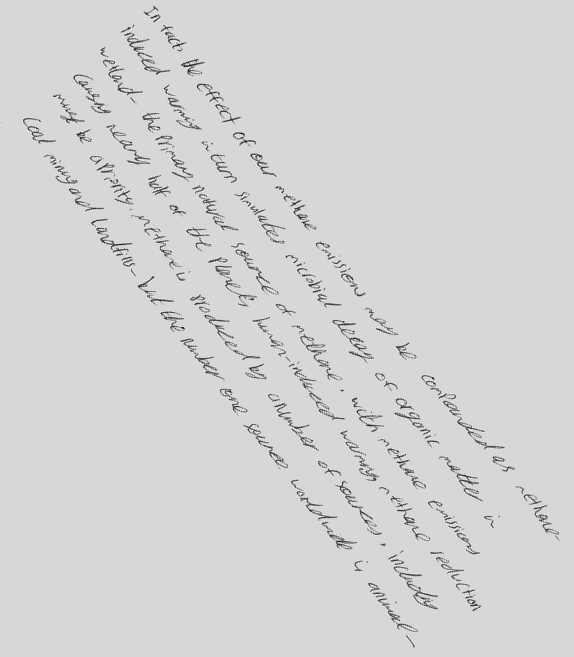 In fact, the effect of our methane emissions may be compounded as methane-
induced warming in turn simulates microbial decay of organic matter in
wetland- the primary natural source of methane. with methane emissions
Causing nearly half of the planet's human-induced warming, methane reduction
must be a priority. methane is produced by a number of sources, including
Coal mining and landfills- but the number one source worldwide is animal-